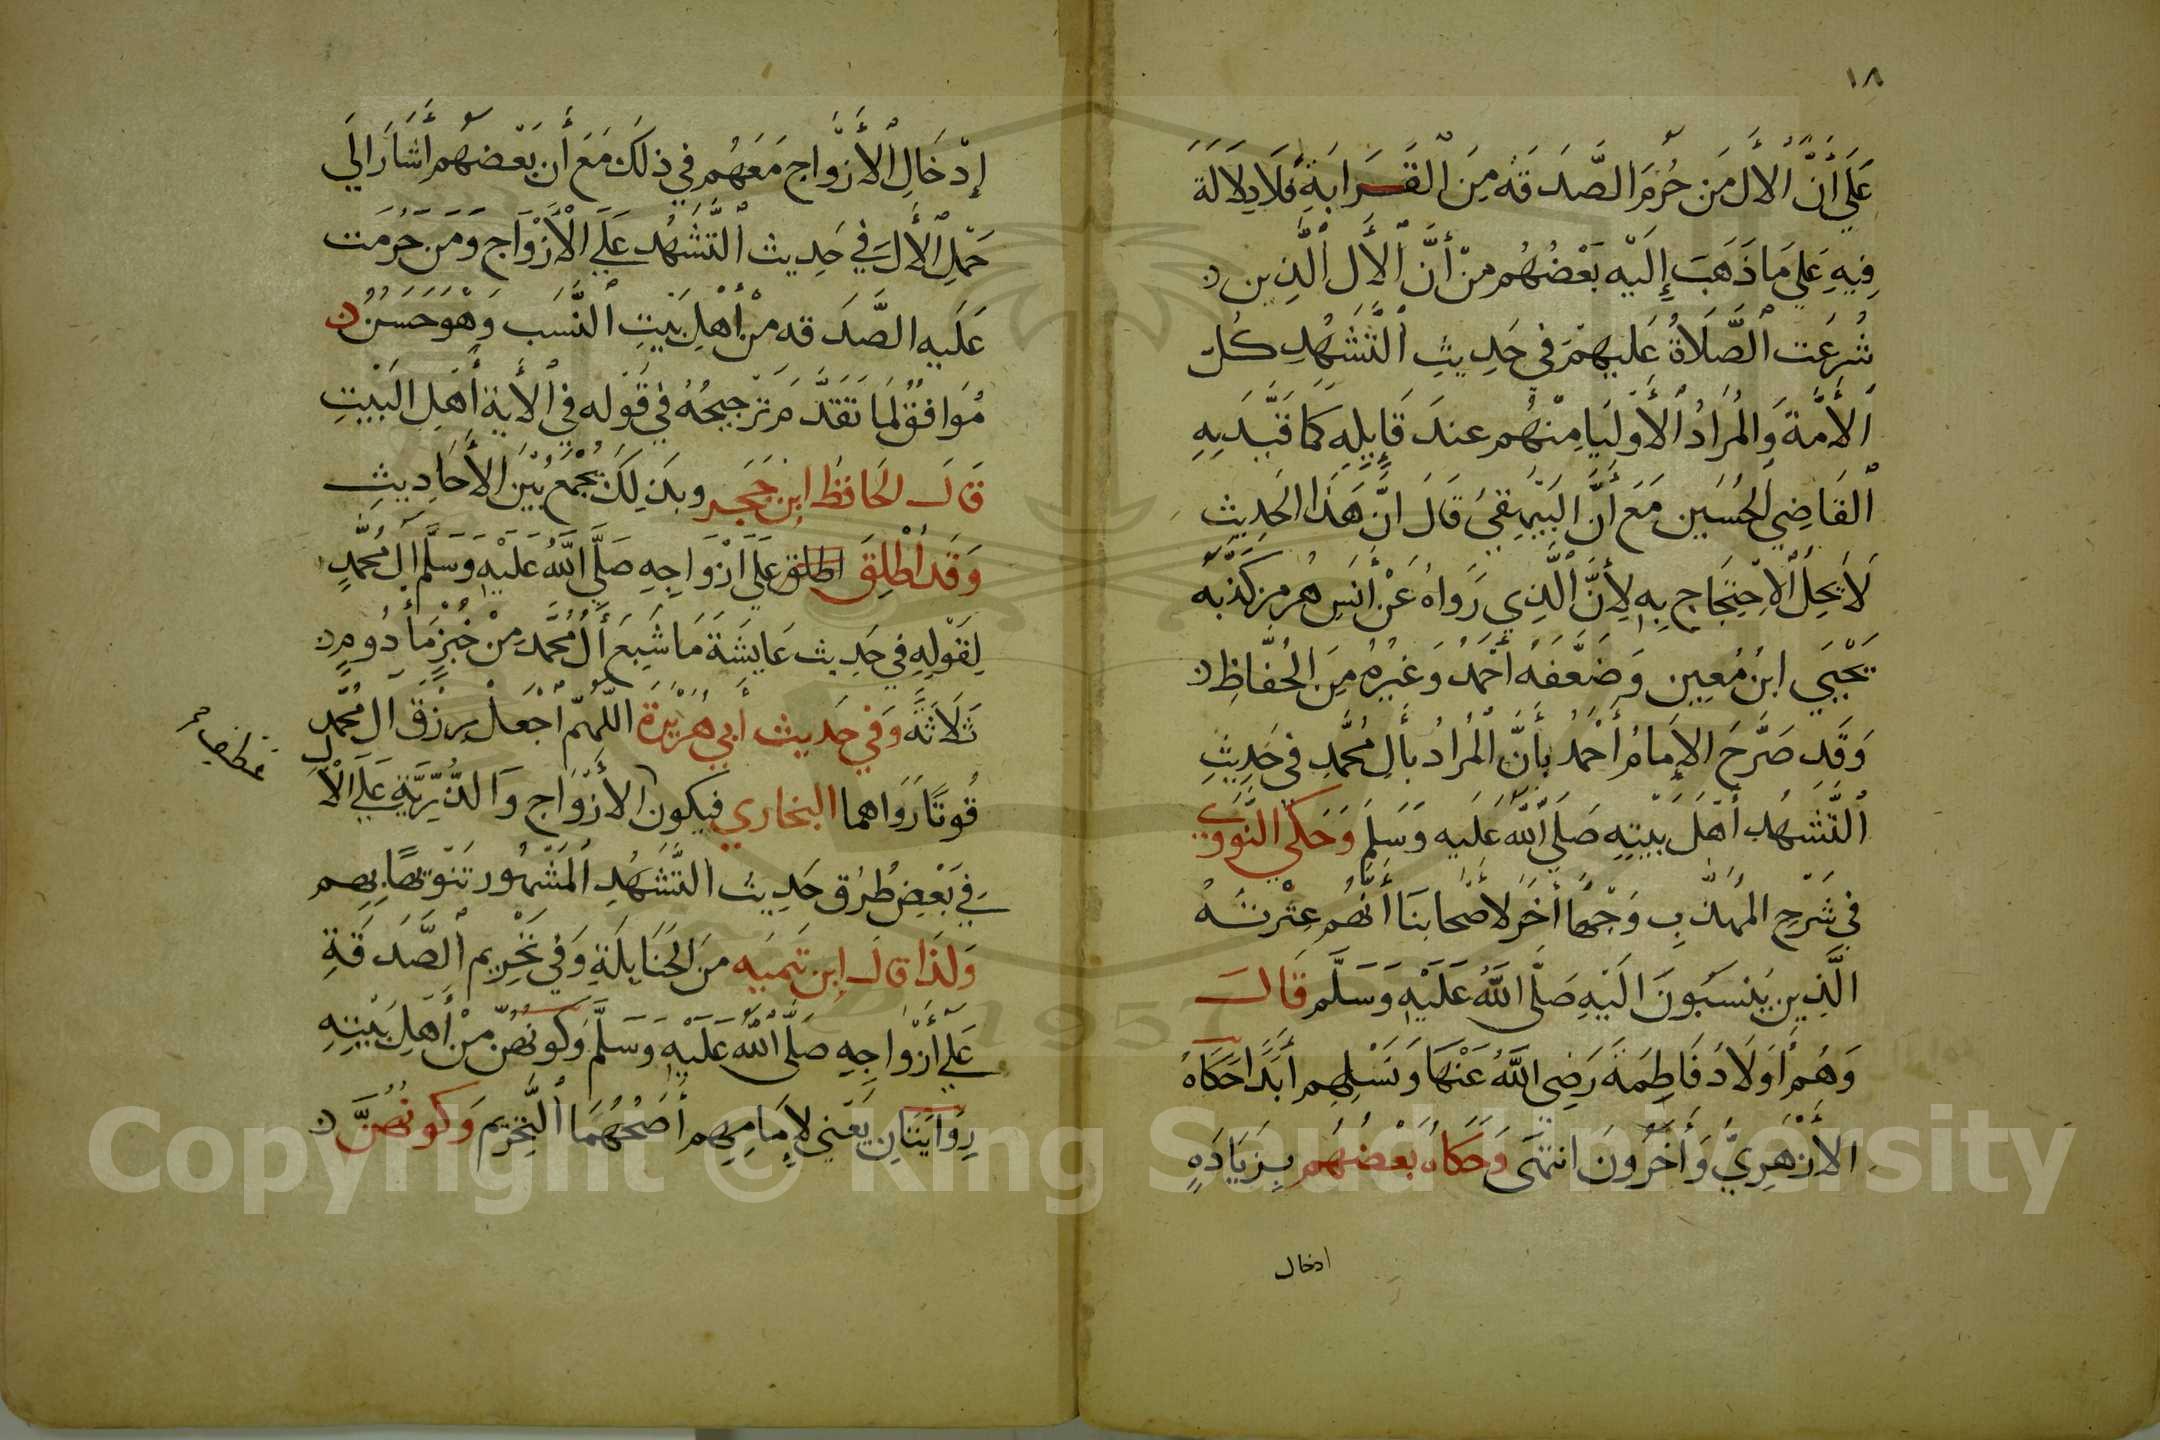 ١٨
عَلَي أَنَّ الْأَل مَن حُرِّمَ الصَّدَقَه مِنَ الْقَرَابَةِ فَلَا دِلَالَة
فِيهِ عَلِي مَا ذَهَبَ إِلَيْه بَعْضُهُم مِنْ أَنَّ الْأَل الَّذِين
شُرِعَت الصَّلَاةُ عَلَيهِمْ فِي حَدِيثِ التَّشَهُدِ كُلّ
الْأُمَّة وَالمُرَادُ الْأَوْلِيَا مِنْهُم عِندَ قَايِلِهِ كَمَا قَيَّدَ بِهِ
الْقَاضِي الحُسَين مَعَ أَنَّ البَيْهَقِيُ قَالَ انَّ هَذَا الحَدِيث
لَا يَحِلُ الْاِحْتِجَاج بِهِ لِأَنَّ الَّذِي رَوَاهُ عَنْ أَنَس هُرمُز كَذَّبَهُ
يَحْيَي ابنُ مُعِين وَضَعَّفَهُ أَحْمَدُ وَغَيْرُهُ مِنَ الحُفَّاظِ
وَقَد صَرَّحَ الإِمَامُ أَحْمَدُ بِأَنَّ المُرَادُ بأَلِ مُحَمَّدٍ فِي حَدِيثِ
الْتَّشَهُدِ أَهْلَ بَيْتِهِ صَلَّى اللَّه عَلَيه وَسَلم وَحَكَي النَّوَوِي
فِي شَرْحِ المُهَذَّبِ وَجْهًا أَخَر لأَصْحَابِنَا أَنَّهُم عِتْرتُهُ
الَّذِين يُنْسَبُونَ الَيْهِ صَلَّى اللَّهُ عَلَيْهِ وَسَلَّم قَالَ
وَهُم أَوْلَادُ فَاطِمَةَ رَضِي اللَّهُ عَنْهَا وَنَسْلِهِم أَبَدًا حَكَاهُ
الْأَزْهَرِيُّ وَأَخَرُونَ انتَهَى وَحَكَاهُ بَعْضُهُم بِزِيَادَةٍ
ادخال
إِدْخَالِ الْأَزْوَاج مَعَهُم فِي ذلَكَ مَعَ أَن بَعْضَهُم أَشَارَ الَي
حَمْلِ الْأَل فِي حَدِيث التَّشَهُد عَلَي الْأَزْوَاج وَمَن حَرُمَت
عَلَيه الصَّدَقه مِنْ أَهْلِ بَيْتِ النَّسَب وَهْوَ حَسَنٌ
مُوَافِقٌ لمَا تَقَدَّمَ تَرْجيحُهُ فِي قَوْله فِي الْأَية أَهْلِ البَيْتِ
قَالَ الحَافظُ ابنُ حَجَر وبذَلِكَ يُجْمَعُ بَيْنَ الأَحَادِيثِ
وَقَد أُطْلِقَ اطلق عَلَي ازْوَاجِهِ صَلَّي اللَّهُ عَلَيْهِ وَسَلَّم آل مُحَمَّدٍ
لِقَوْلِهِ فِي حَدِيث عَايشَةَ مَا شَبِعَ أَلُ مُحَمَّد مِنْ خُبْزٍ مَأدُومٍ
ثَلَاثَةً وَفي حَديث أَبِي هُرَيْرَةَ اللَّهُمّ اجْعَلْ رِزْقَ ال مُحَمَّد
قُوتًا رَوَاهما البخاري فيكون الأَزْوَاج وَالذُّرِّيَّةِ عَلَي الْأل
فِي بَعْضِ طُرُقِ حَدِيث التَّشَهُدِ المَشْهُور تَنْوِيهًا بِهم
وَلذَا قَالَ ابن تَيمِيه مِنَ الحَنَابِلَةِ وَفي تَحْرِيم الصَّدَقَةِ
عَلَي أَزْوَاجِهِ صَلَّى اللَّهُ عَلَيْهِ وَسَلَّم وَكَونُهُنّ مِنْ أَهْلِ بَيْتِهِ
رِوَايَتَانِ يَعْنِي لإِمَامِهِم أَصَحُّهُمَا التَّحْرِيم وَكَونُهُنَّ
Copyright © King Saud University
1957